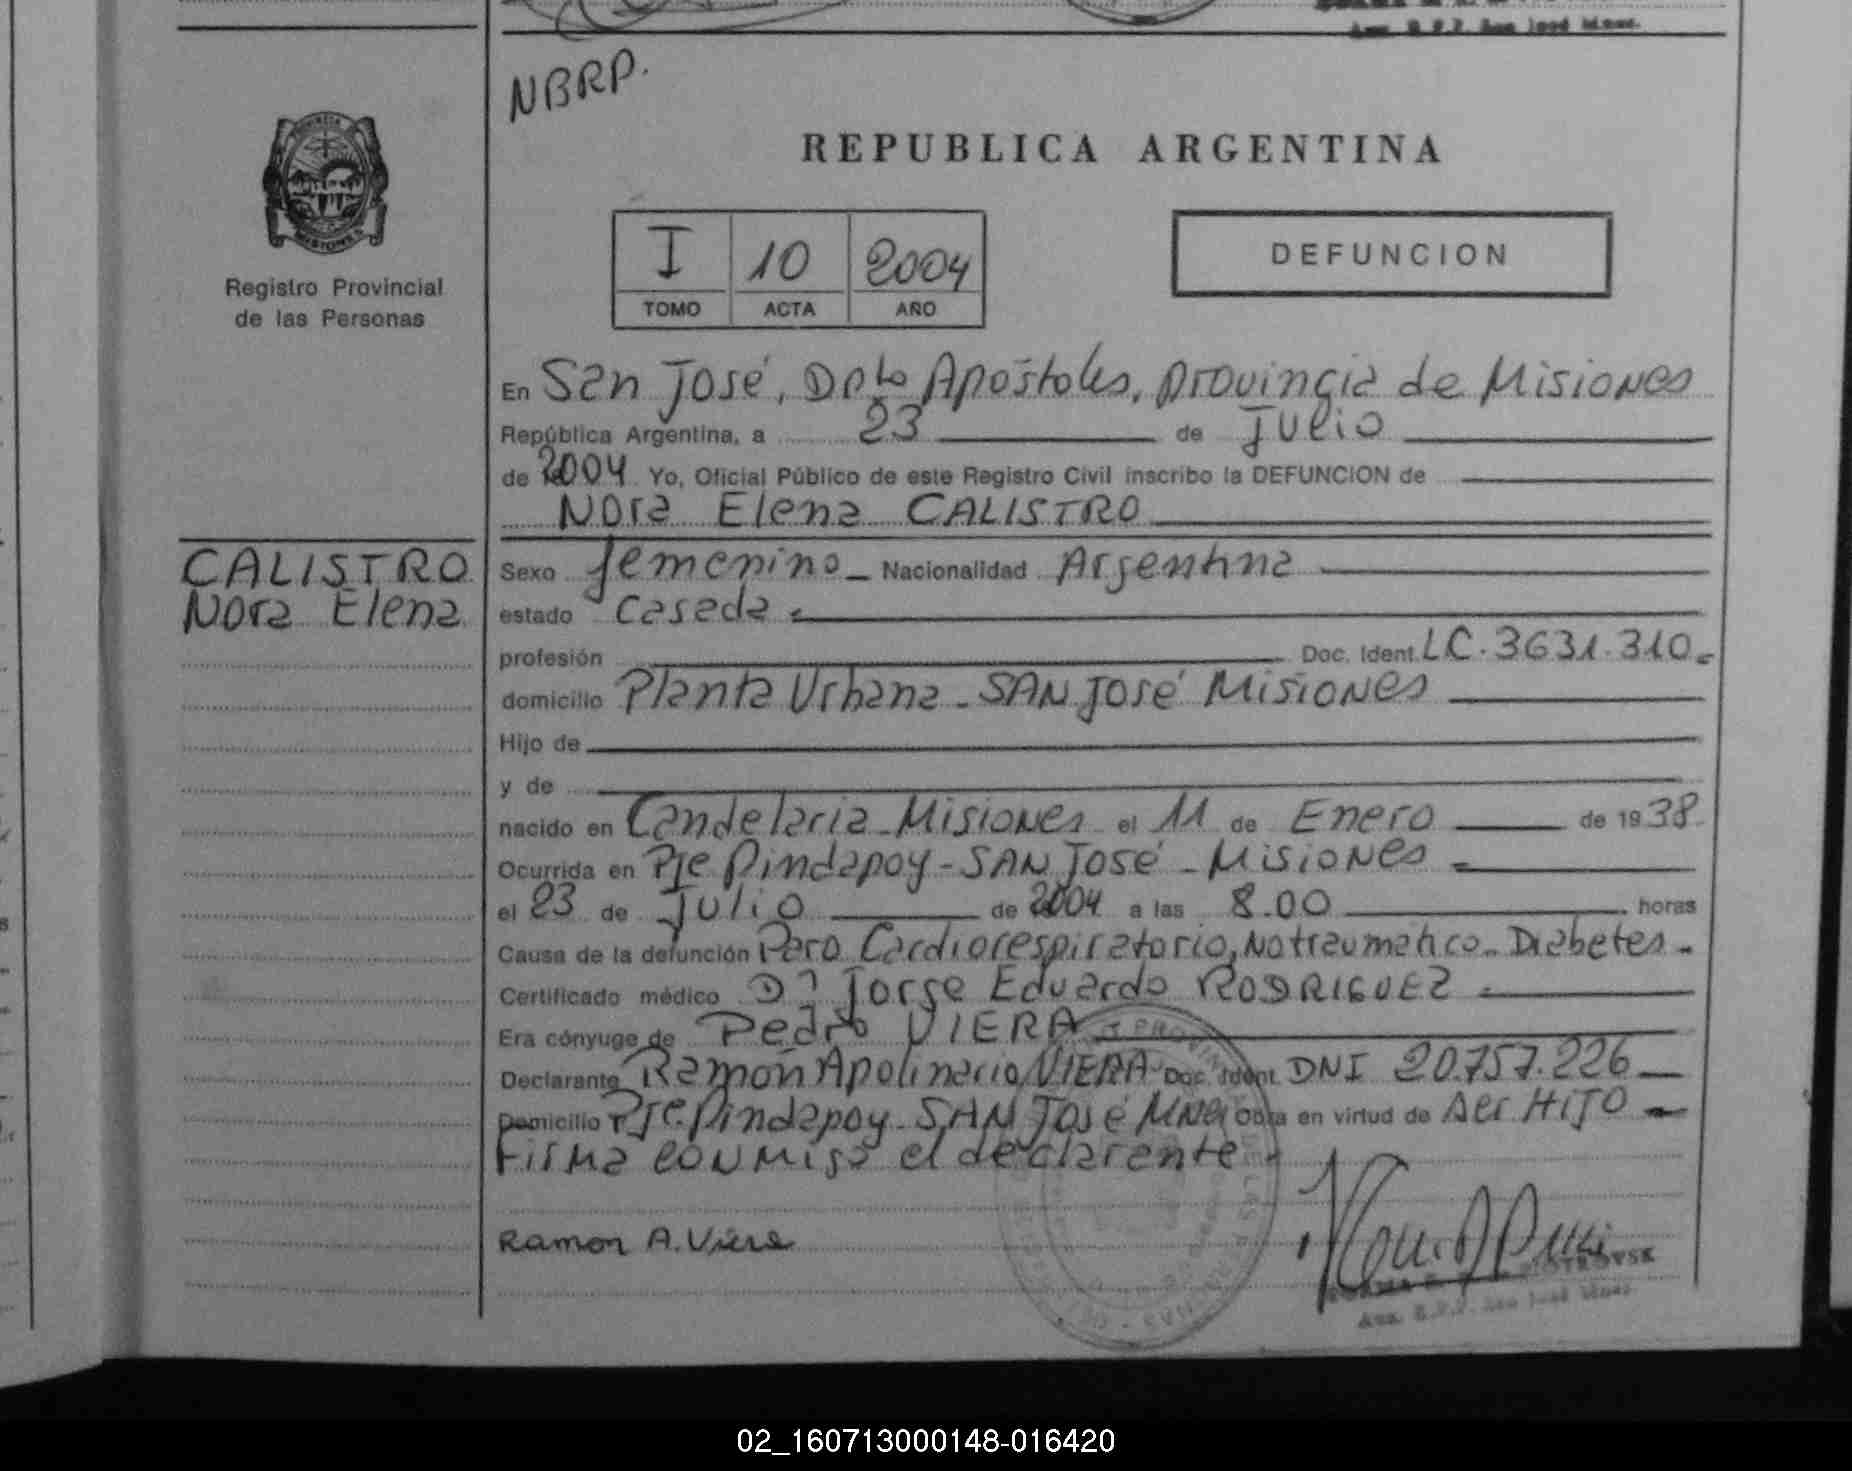 Aux. R.P.P. San José Mnes.
NBRP.
REPUBLICA ARGENTINA
PROVINCIA
MISIONES
Registro Provincial
de las Personas
I 10 2004
TOMO ACTA AÑO
DEFUNCION
En San José, Dpto Apóstoles, provincia de Misiones
República Argentina, a 23 de Julio
de 2004 Yo, Oficial Público de este Registro Civil inscribo la DEFUNCION de
Nora Elena CALISTRO
CALISTRO
Nora Elena
Sexo femenino Nacionalidad Argentina
estado Casada
profesión Doc. Ident. LC. 3631.310
domicilio Planta Urbana - SAN José Misiones
Hijo de
y de
nacido en Candelaria - Misiones el 11 de Enero de 1938
Ocurrida en Pje Pindapoy - SAN José - Misiones
el 23 de Julio de 2004 a las 8.00 horas
Causa de la defunción Paro Cardiorespiratorio, No traumatico - Diabetes -
Certificado médico Dr Jorge Eduardo RODRIGUEZ
Era cónyuge de Pedro VIERA
Declarante Ramón Apolinario VIERA Doc. Ident. DNI 20.757.226
Domicilio Pje. Pindapoy - SAN José Mnes Obra en virtud de ser HIJO
Firma conmigo el declarante
Ramon A. Viera
Aux. R.P.P. San José Mnes.
02_160713000148-016420